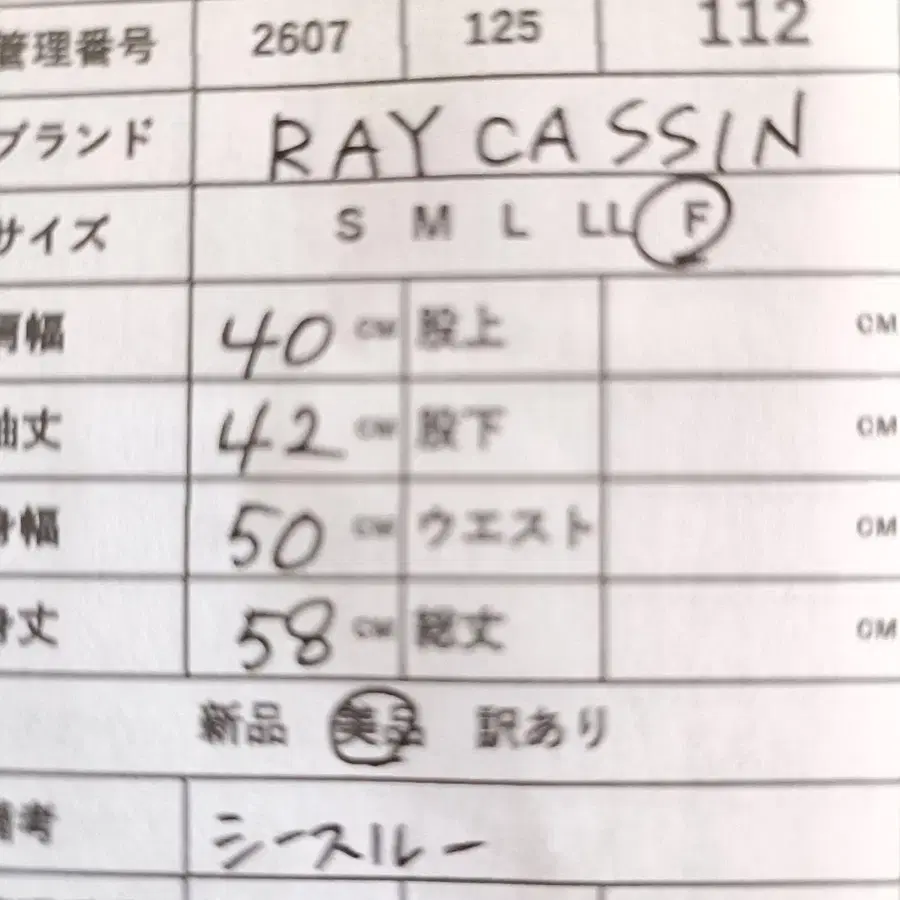 管理番号 2607 125 112
ブランド RAY CASSIN
サイズ S M L LL F
肩幅 40 CM 股上 CM
袖丈 42 CM 股下 CM
身幅 50 CM ウエスト CM
身丈 58 CM 総丈 CM
新品 美品 訳あり
備考 シースルー